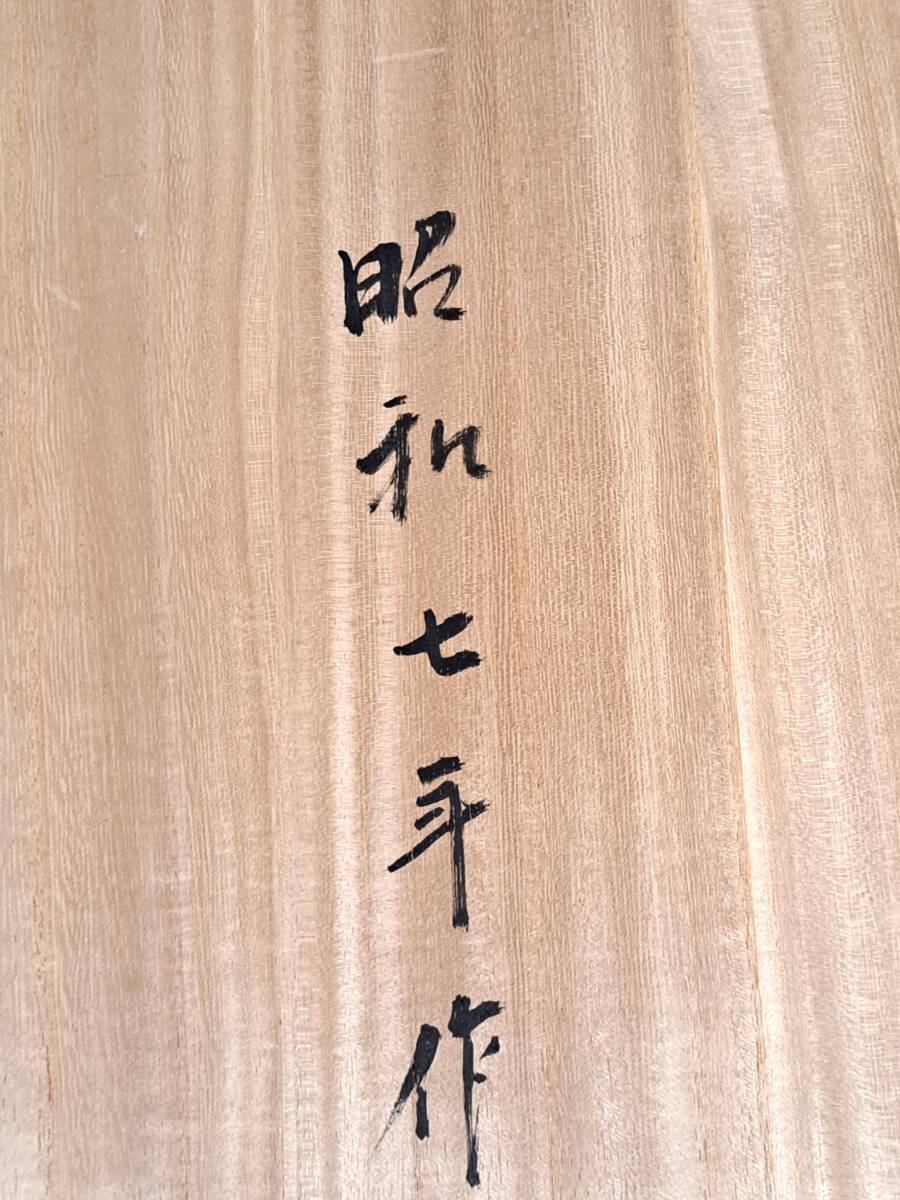 昭和七年作